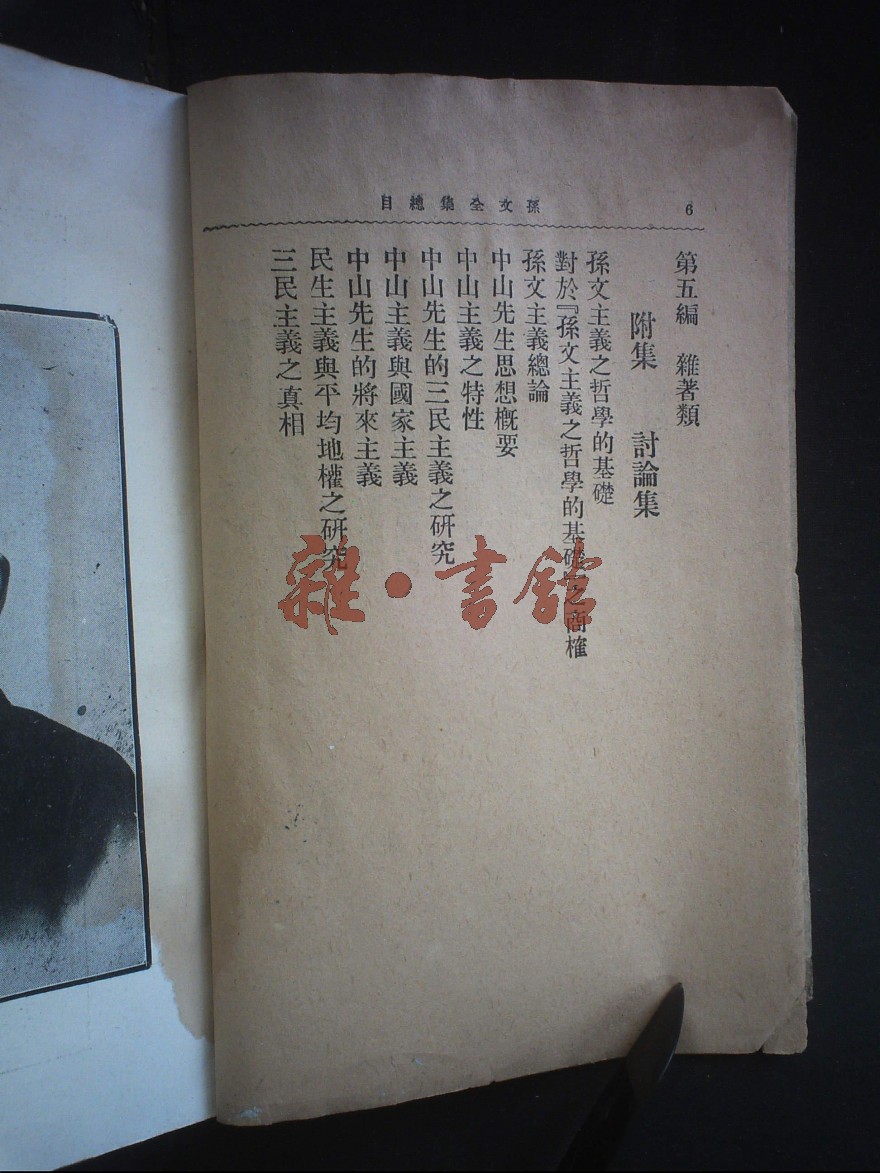 孫文全集總目
6
第五編　雜著類
附集　討論集
孫文主義之哲學的基礎
對於『孫文主義之哲學的基礎』之商榷
孫文主義總論
中山先生思想概要
中山主義之特性
中山先生的三民主義之研究
中山主義與國家主義
中山先生的將來主義
民生主義與平均地權之研究
三民主義之真相
雜·書館